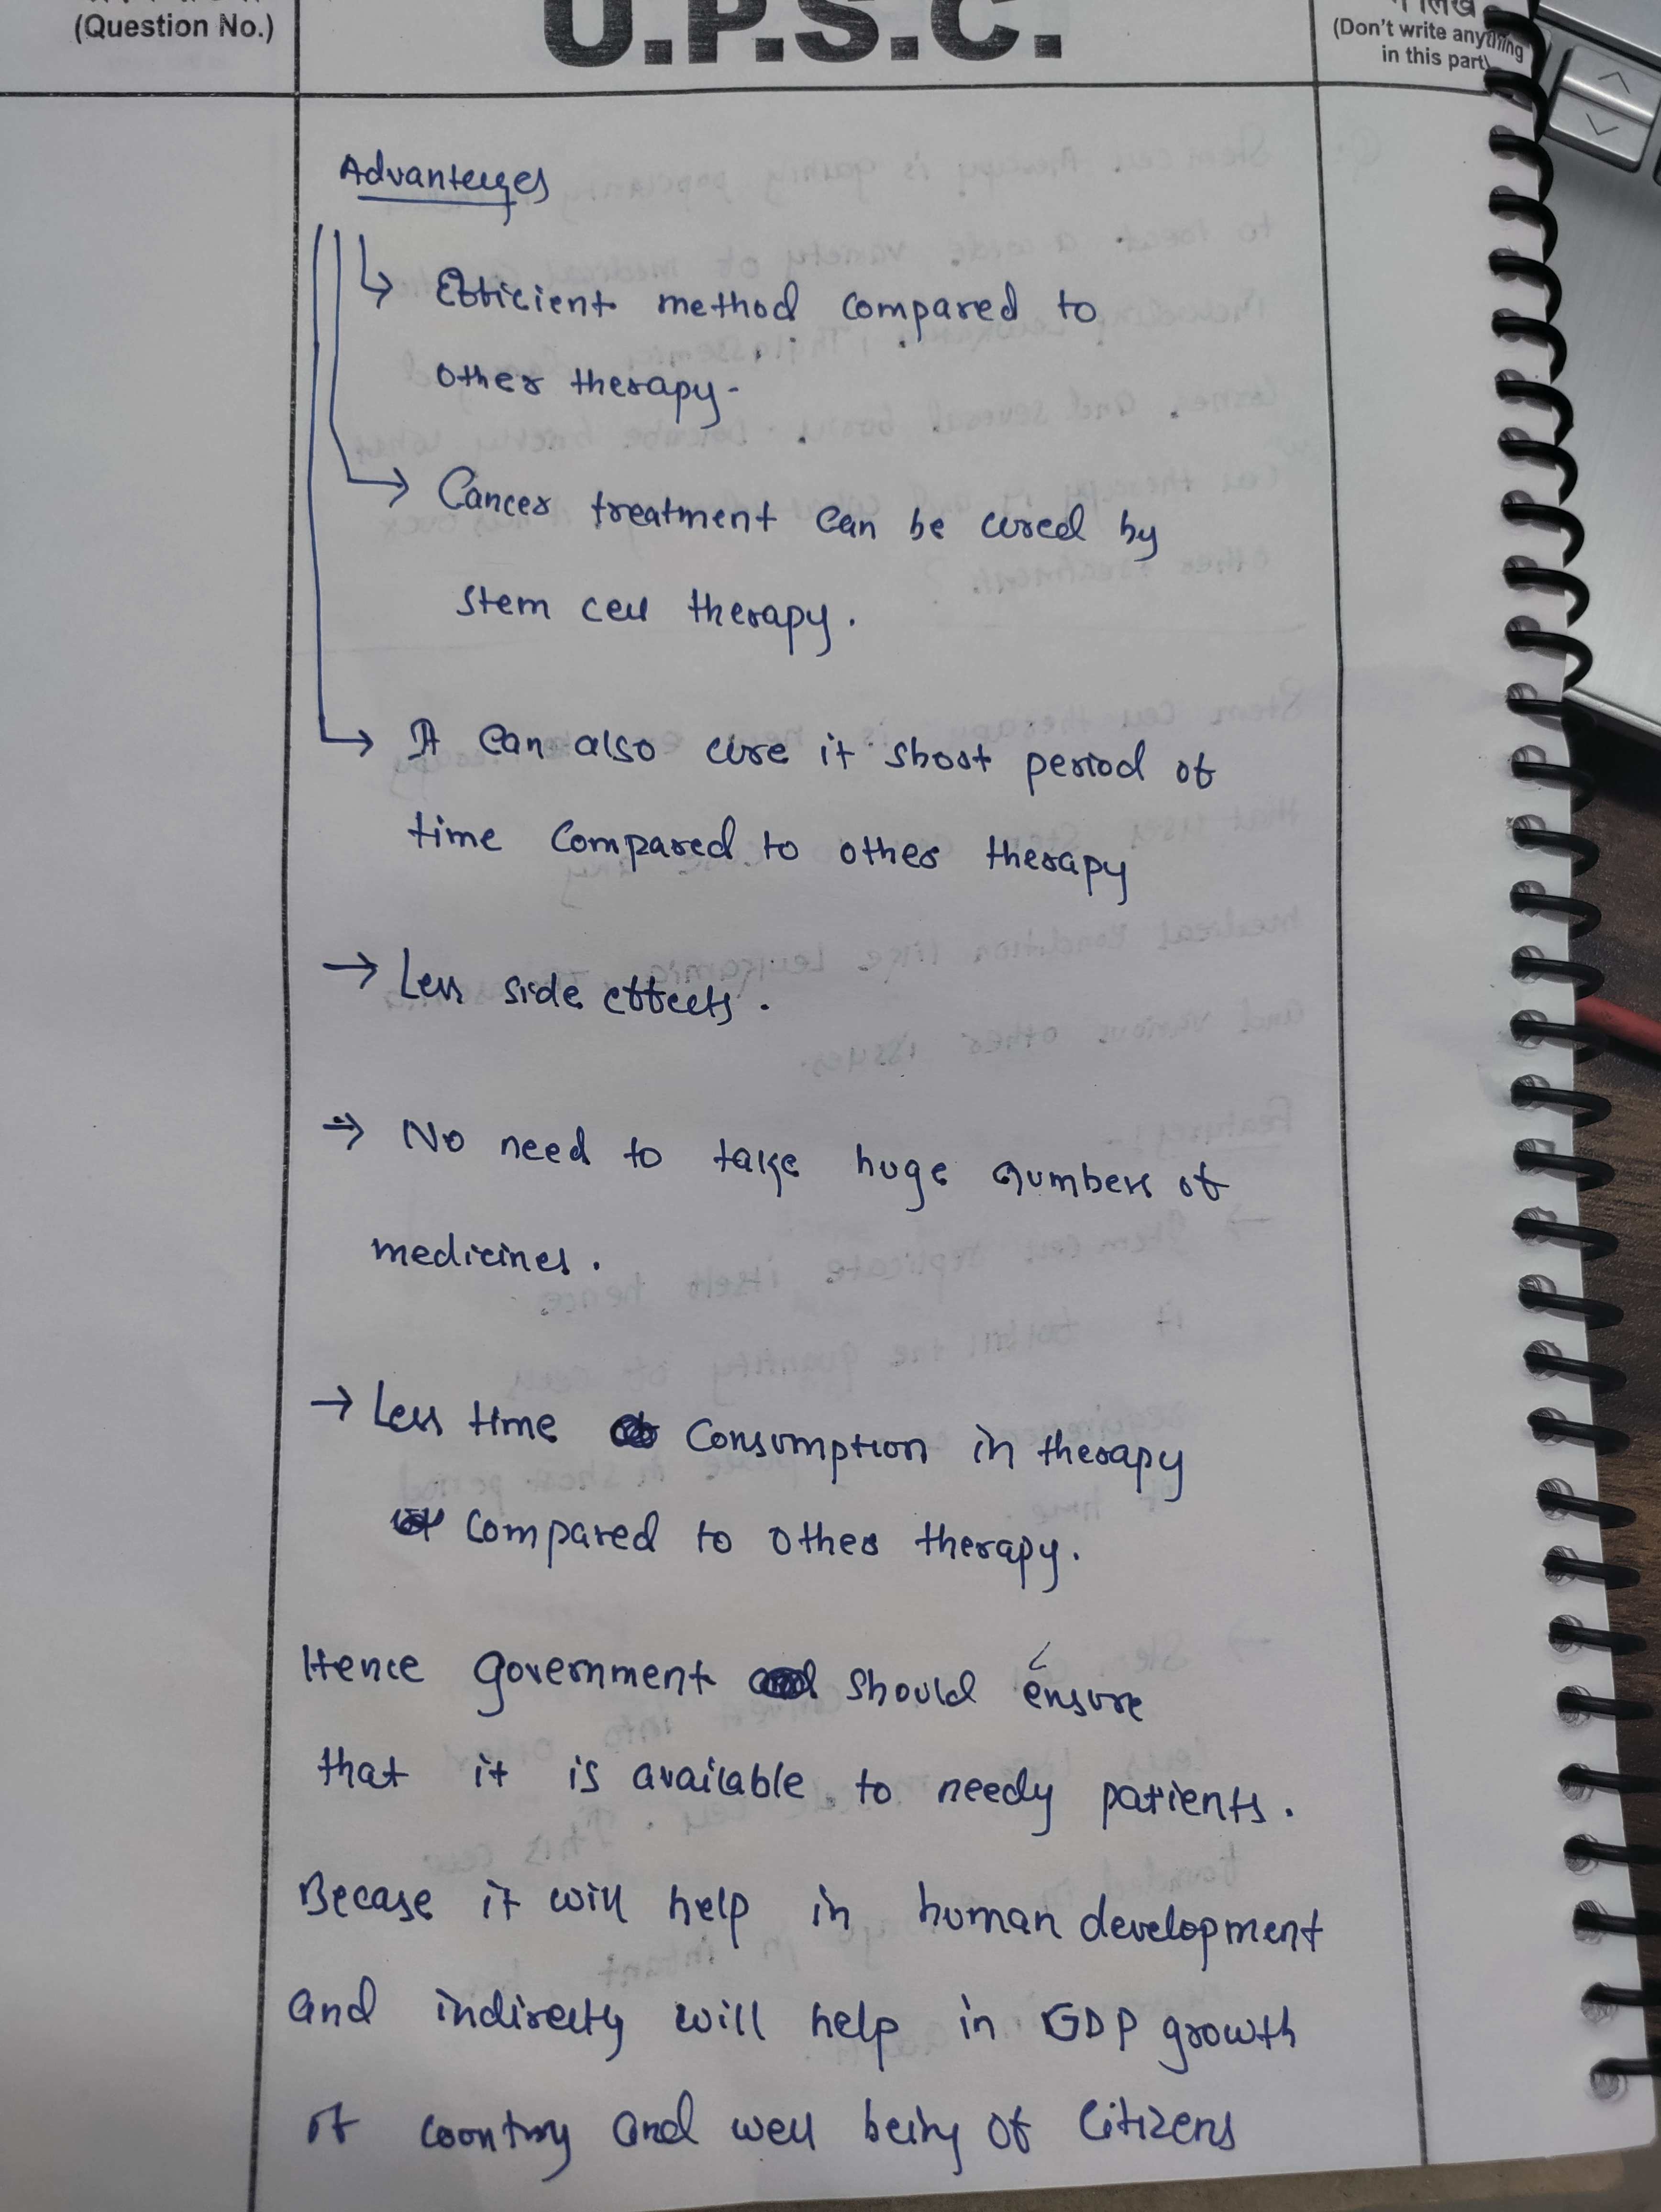 (Question No.)
U.P.S.C.
(Don't write anything
in this part)
Advanteges
Efficient method compared to
other therapy-
Cancer treatment can be cured by
stem cell therapy.
It can also cure it short period of
time compared to other therapy
→ Less side effects.
→ No need to take huge numbers of
medicines.
→ Less time consumption in therapy
compared to other therapy.
Hence government should ensure
that it is available to needy patients.
Becase it will help in human development
and indirectly will help in GDP growth
of country and well being of citizens